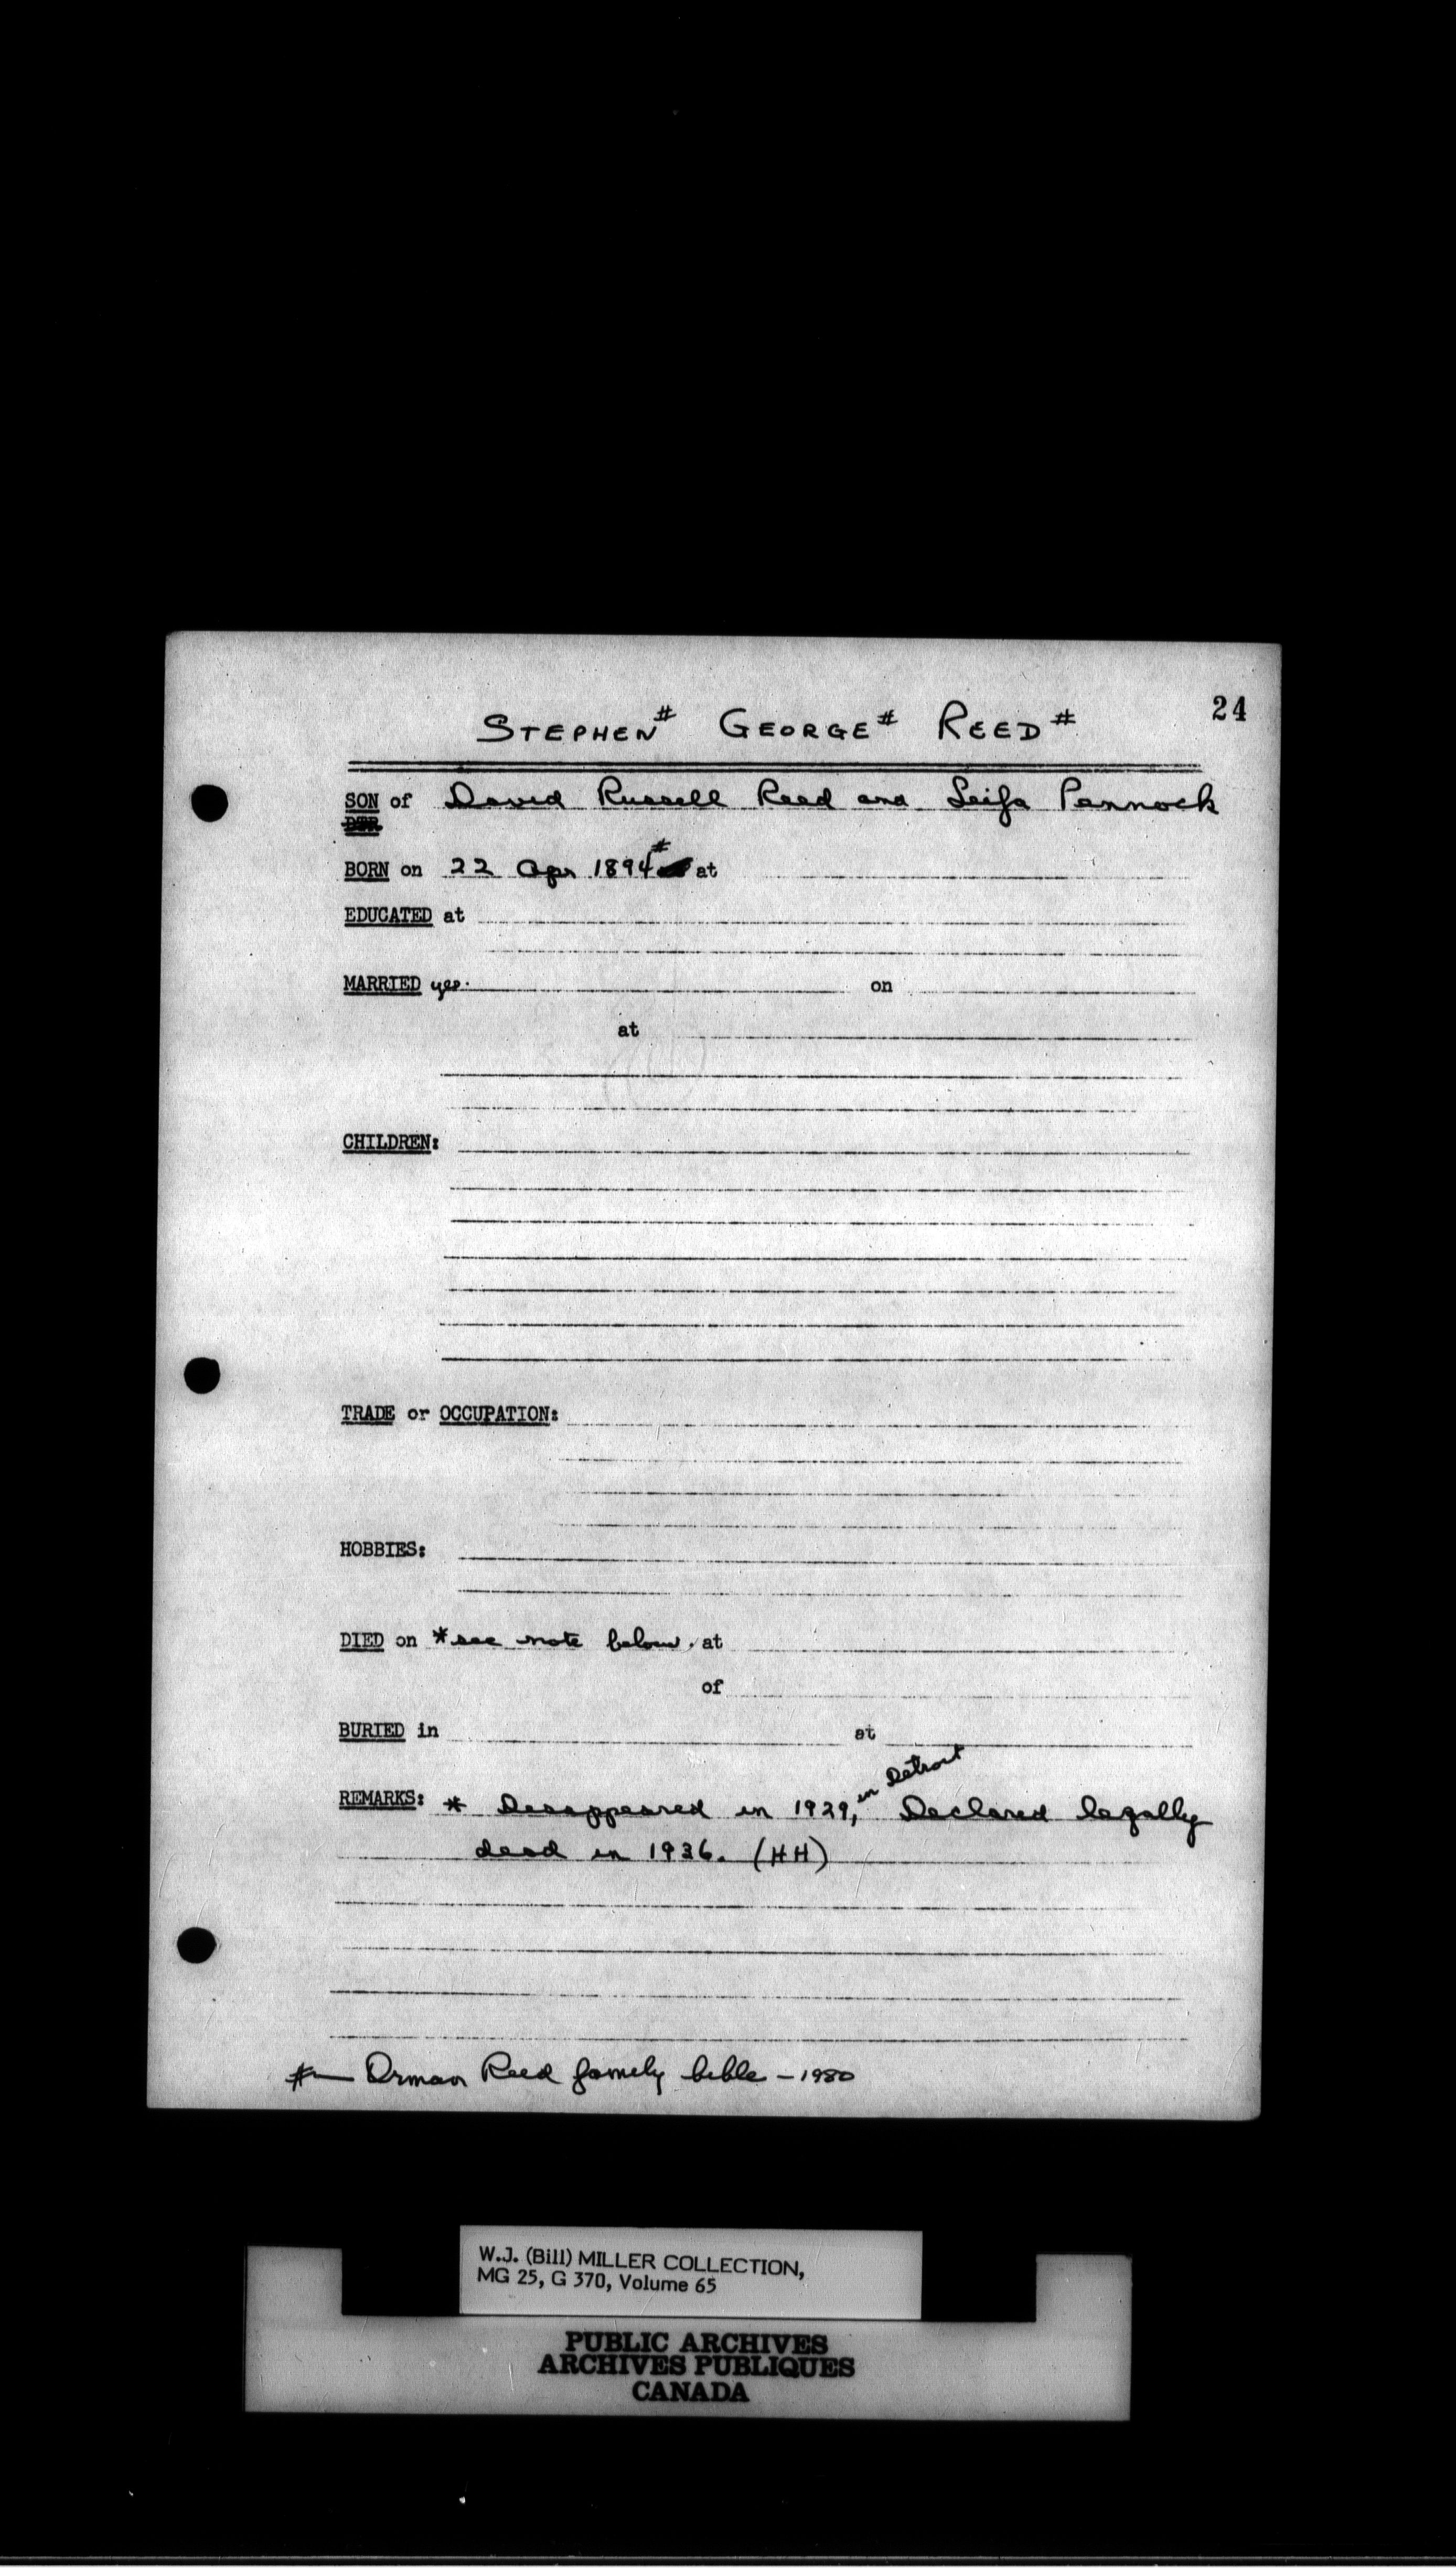 24
STEPHEN# GEORGE# REED#
SON of David Russell Reed and Leifa Pennock
DTR
BORN on 22 Apr 1894# at
EDUCATED at
MARRIED yes. on
at
CHILDREN:
TRADE or OCCUPATION:
HOBBIES:
DIED on *see note below. at
of
BURIED in at
in Detroit
REMARKS: * Disappeared in 1929, Declared legally
dead in 1936. (HH)
#— Orman Reed family bible - 1980
W.J. (Bill) MILLER COLLECTION,
MG 25, G 370, Volume 65
PUBLIC ARCHIVES
ARCHIVES PUBLIQUES
CANADA